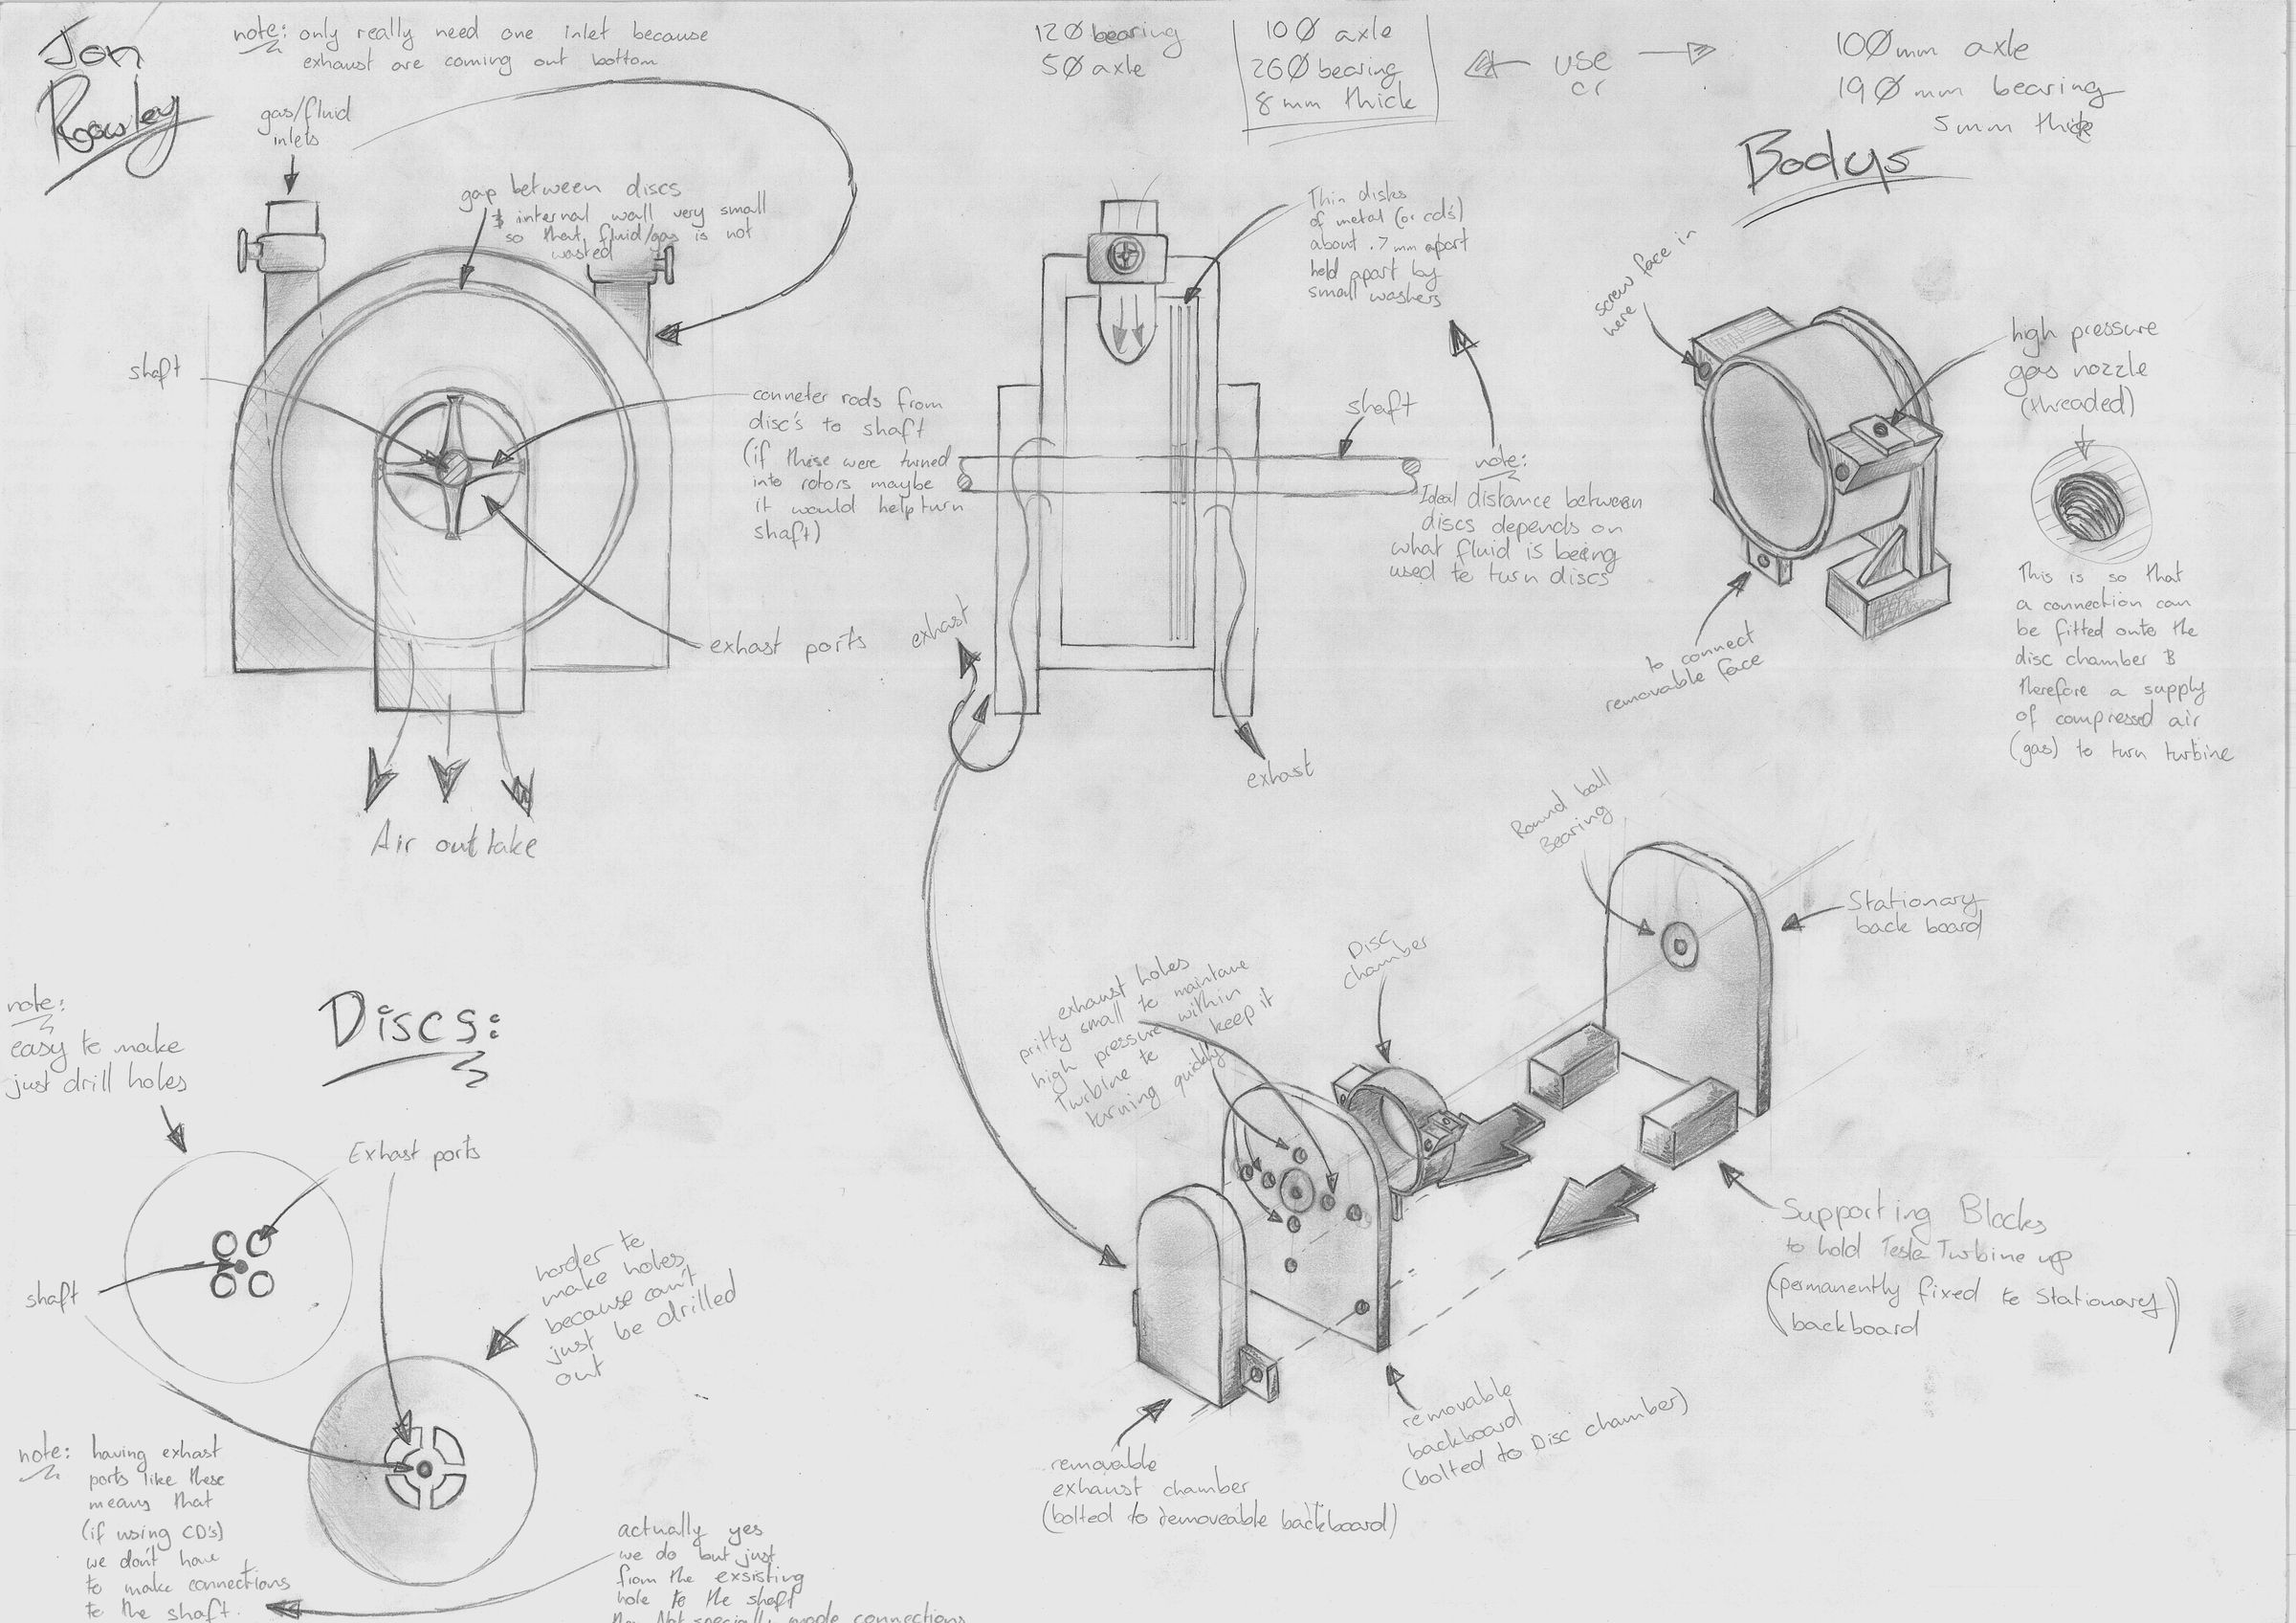 Jon
Rowley
note: only really need one inlet because
exhaust are coming out bottom
gas/fluid
inlets
gap between discs
& internal wall very small
so that fluid/gas is not
wasted
shaft
conneter rods from
disc's to shaft
(if these were turned
into rotors maybe
it would help turn
shaft)
exhast ports
Air out take
12Ø bearing
5Ø axle
10Ø axle
26Ø bearing
8mm thick
use
or
10Ømm axle
19Ømm bearing
5mm thick
Thin disks
of metal (or cd's)
about .7mm apart
held apart by
small washers
shaft
note:
Ideal distance between
discs depends on
what fluid is being
used to turn discs
exhast
exhast
Bodys
screw face in
here
high pressure
gas nozzle
(threaded)
to connect
removable face
This is so that
a connection can
be fitted onto the
disc chamber &
therefore a supply
of compressed air
(gas) to turn turbine
Round ball
Bearing
Stationary
back board
Disc
chamber
exhaust holes
pritty small to maintane
high pressure within
Turbine to keep it
turning quickly
Supporting Blocks
to hold Tesla Turbine up
(permanently fixed to Stationary
backboard)
removable
backboard
(bolted to Disc chamber)
removable
exhaust chamber
(bolted to removeable backboard)
Discs:
note:
easy to make
just drill holes
Exhast ports
shaft
harder to
make holes
because can't
just be drilled
out
note: having exhast
ports like these
means that
(if using CD's)
we don't have
to make connections
to the shaft.
actually yes
we do but just
from the exsisting
hole to the shaft
Not specially made connections